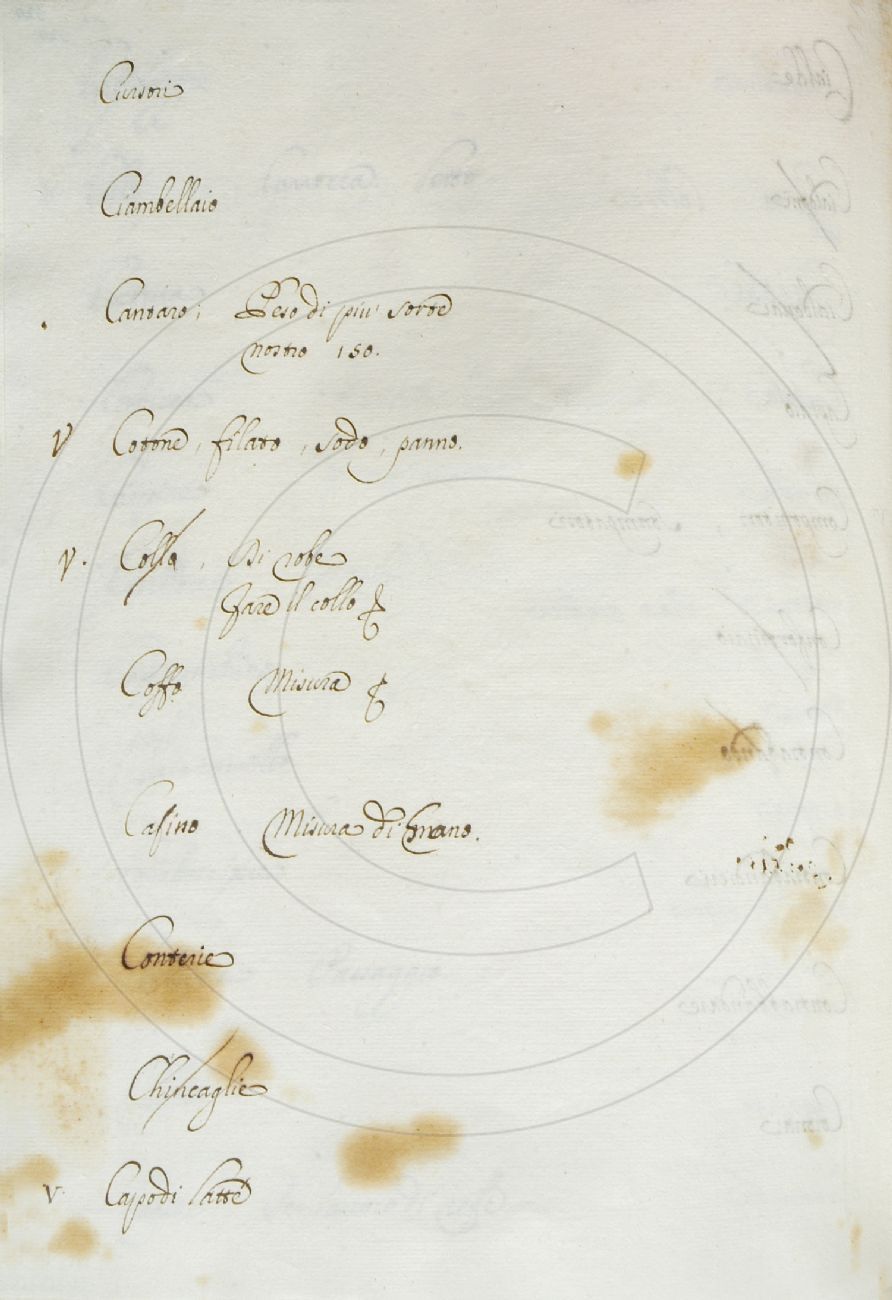 Cursori
Ciambellaio
Cantaro; Peso di piu' sorte
nostro 150.
V Cotone, filato, sodo, panno.
V. Collo, Di robe
Fare il collo
Coffo Misura
Casino Misura di Grano.
Conterie
Chincaglie
V Capo di latte